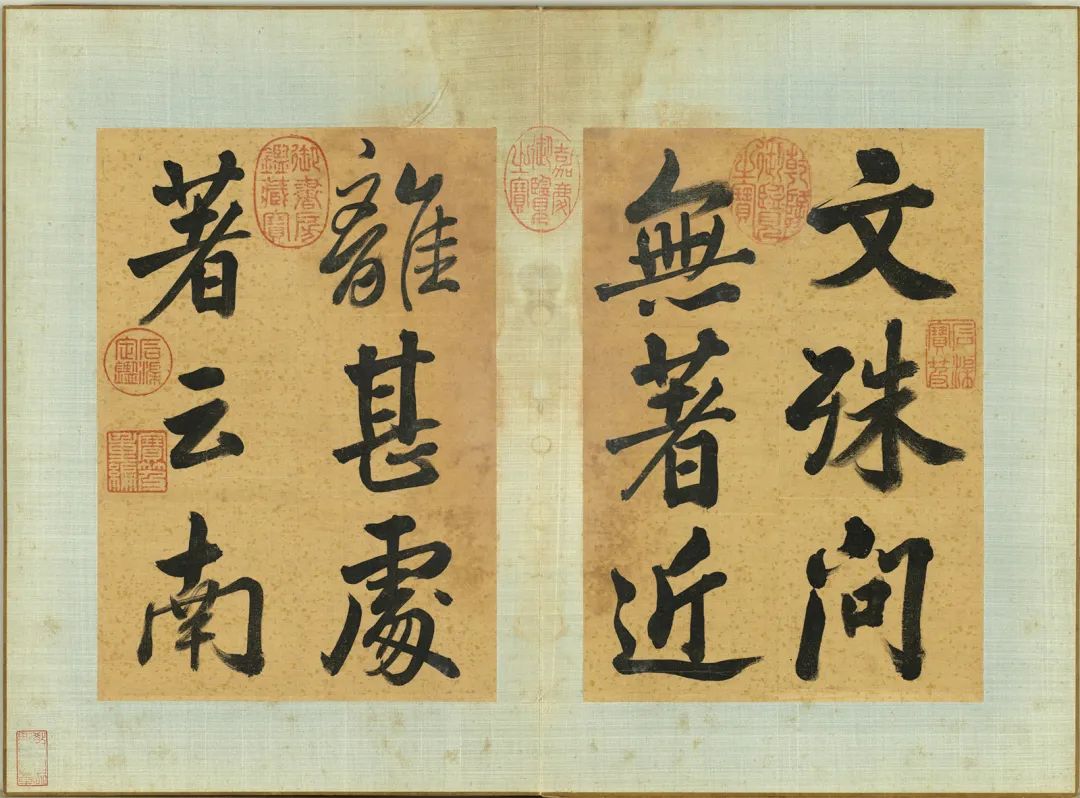 文殊問
無著近
離甚處
著云南
乾隆御覽之寶
石渠寶笈
嘉慶御覽之寶
御書房鑑藏寶
石渠定鑑
寶笈重編